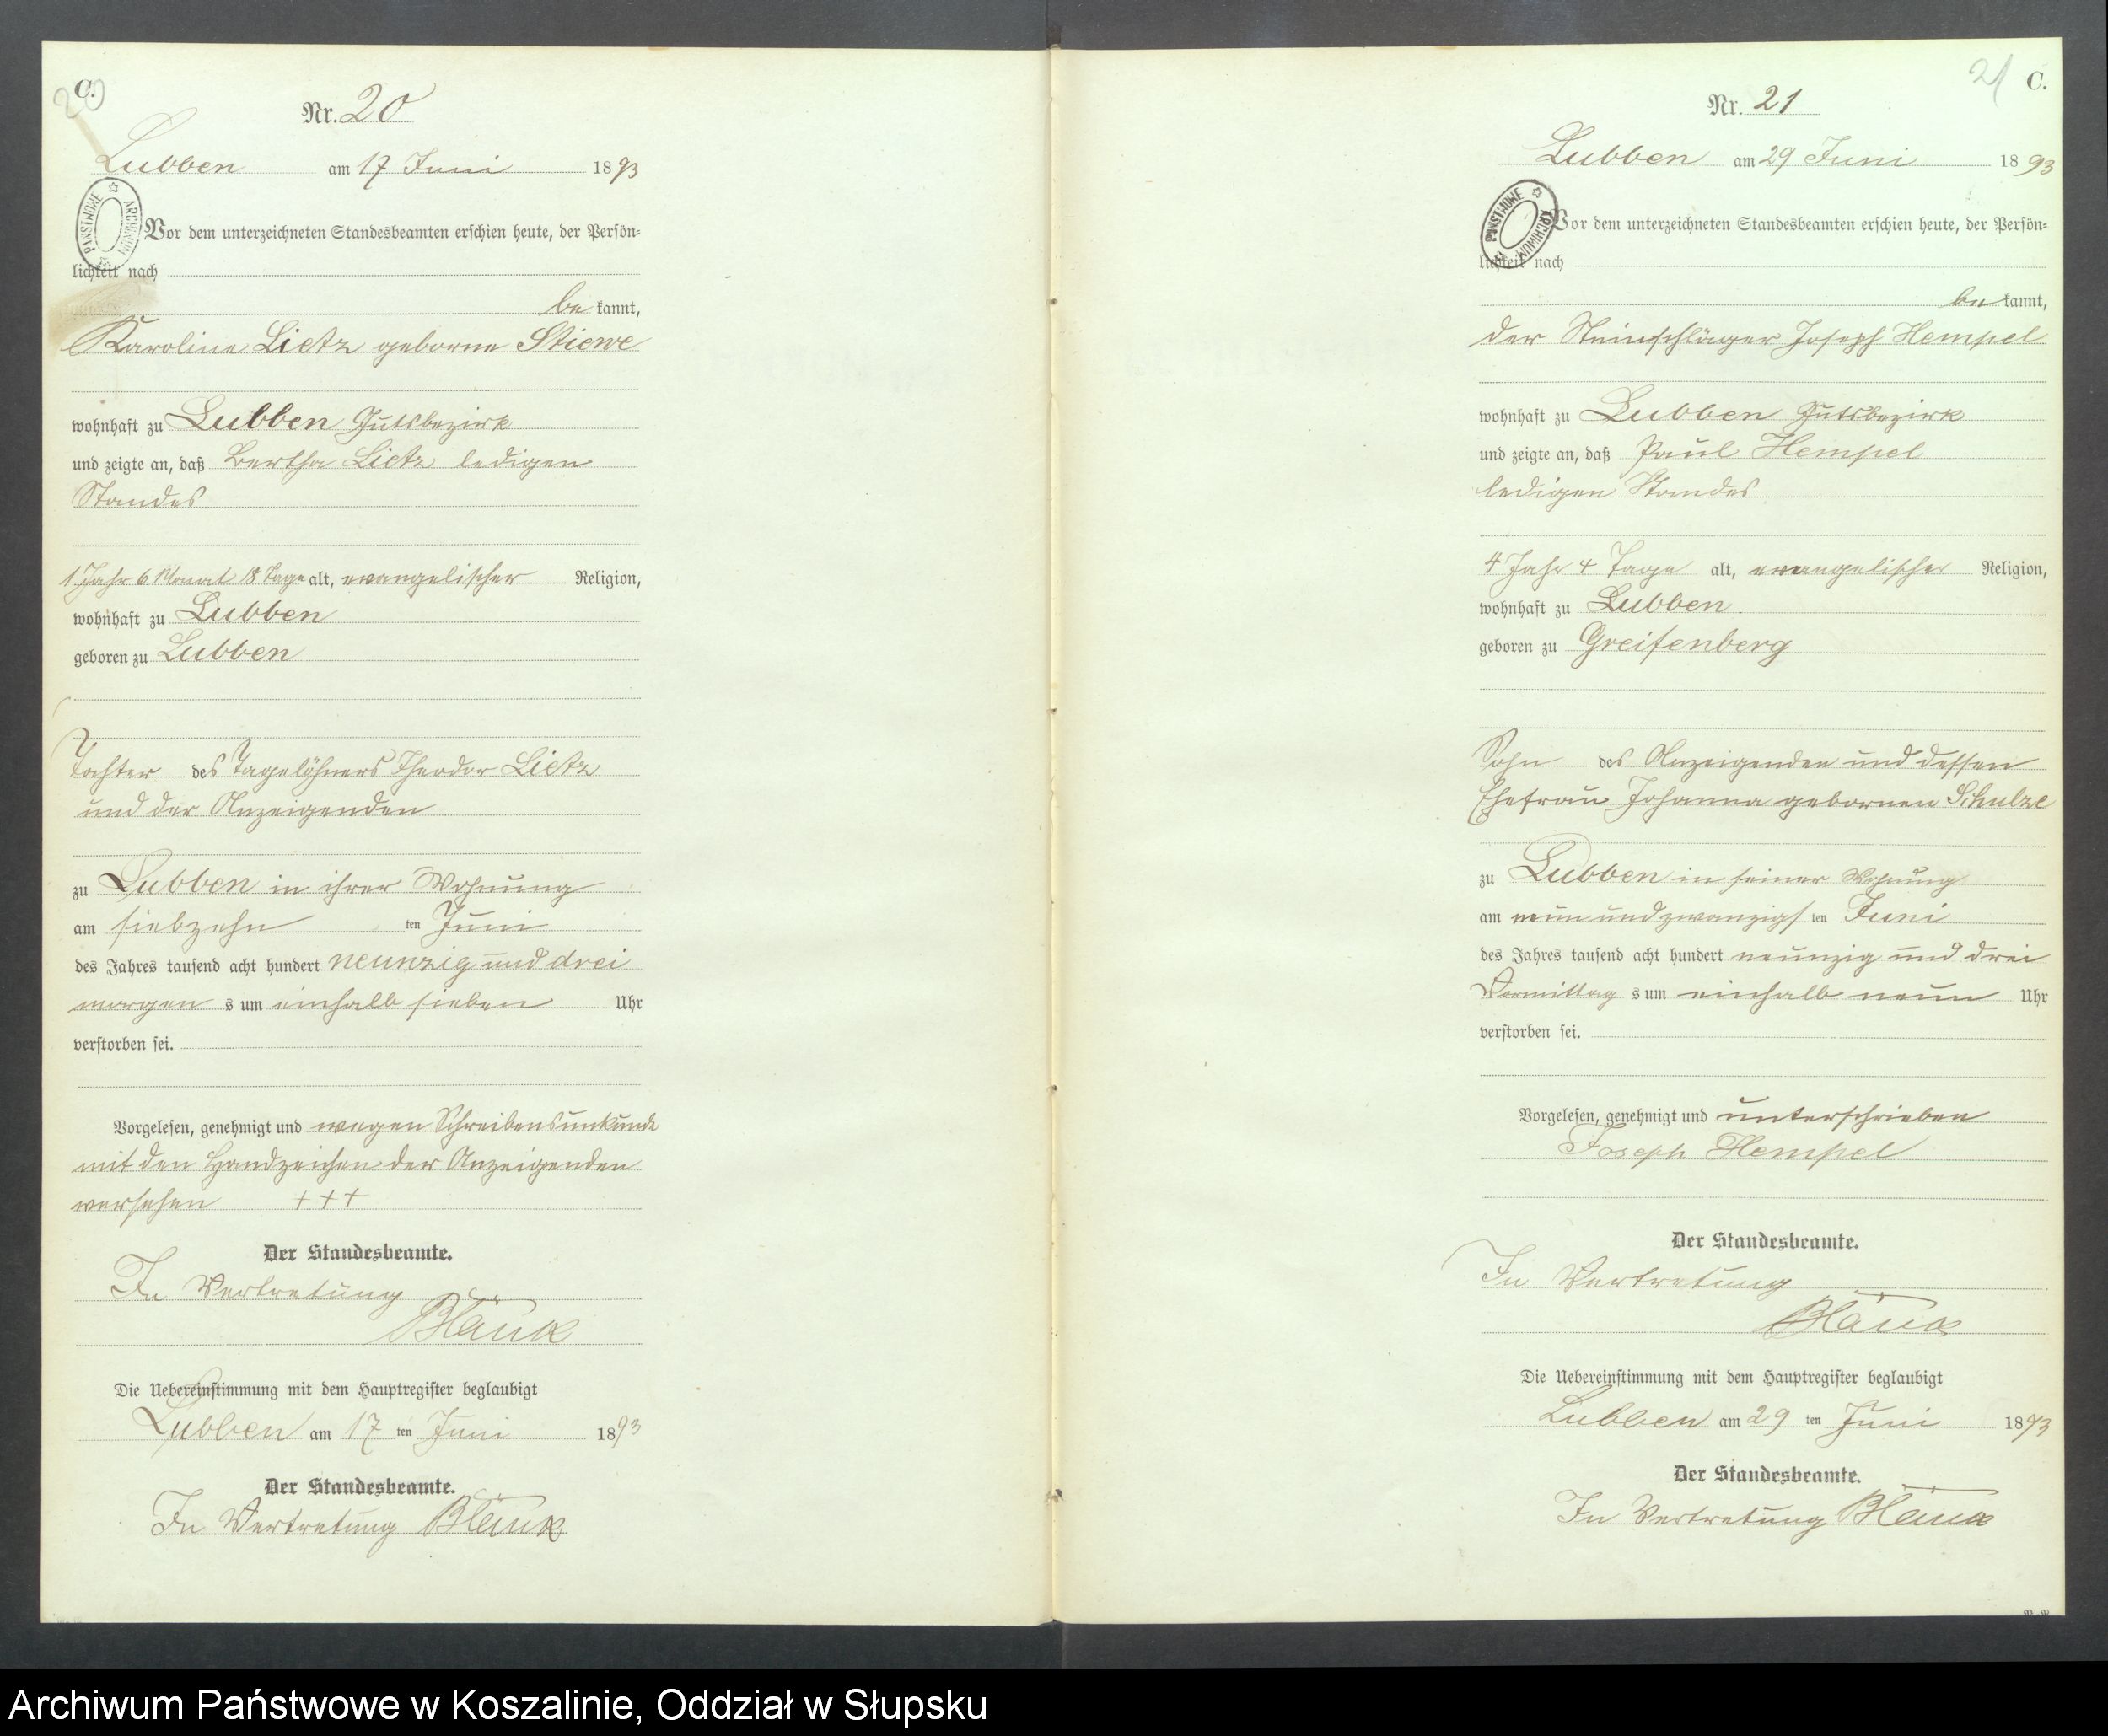 C.
20
Nr. 20
Lubben am 17 Juni 1893
PAŃSTWOWE ARCHIWUM
Vor dem unterzeichneten Standesbeamten erschien heute, der Persön-
lichkeit nach
be kannt,
Karoline Lietz geborne Stiewe
wohnhaft zu Lubben Gutsbezirk
und zeigte an, daß Bertha Lietz ledigen
Standes
1 Jahr 6 Monat 18 Tage alt, evangelischer Religion,
wohnhaft zu Lubben
geboren zu Lubben
Tochter des Tagelöhners Theodor Lietz
und der Anzeigenden
zu Lubben in ihrer Wohnung
am siebzehn ten Juni
des Jahres tausend acht hundert neunzig und drei
morgen s um einhalb sieben Uhr
verstorben sei.
Vorgelesen, genehmigt und wegen Schreibensunkunde
mit den Handzeichen der Anzeigenden
versehen +++
Der Standesbeamte.
In Vertretung
Blänk
Die Uebereinstimmung mit dem Hauptregister beglaubigt
Lubben am 17 ten Juni 1893
Der Standesbeamte.
In Vertretung Blänk
21
C.
Nr. 21
Lubben am 29 Juni 1893
PAŃSTWOWE ARCHIWUM
Vor dem unterzeichneten Standesbeamten erschien heute, der Persön-
lichkeit nach
be kannt,
der Steinschläger Joseph Hempel
wohnhaft zu Lubben Gutsbezirk
und zeigte an, daß Paul Hempel
ledigen Standes
4 Jahr 4 Tage alt, evangelischer Religion,
wohnhaft zu Lubben
geboren zu Greifenberg
Sohn des Anzeigenden und dessen
Ehefrau Johanna gebornen Schulze
zu Lubben in seiner Wohnung
am neunundzwanzigs ten Juni
des Jahres tausend acht hundert neunzig und drei
Vormittag s um einhalb neun Uhr
verstorben sei.
Vorgelesen, genehmigt und unterschrieben
Joseph Hempel
Der Standesbeamte.
In Vertretung
Blänk
Die Uebereinstimmung mit dem Hauptregister beglaubigt
Lubben am 29 ten Juni 1893
Der Standesbeamte.
In Vertretung Blänk
Archiwum Państwowe w Koszalinie, Oddział w Słupsku